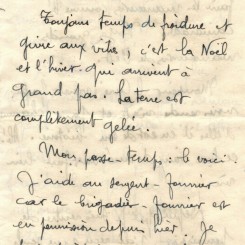 Toujours temps de froidure et
givre aux vitres, c'est la Noël
et l'hiver qui arrivent à
grand pas. La terre est
complètement gelée.
Mon passe-temps : le voici.
J'aide au sergent-fourrier
car le brigadier-fourrier est
en permission depuis hier. Je